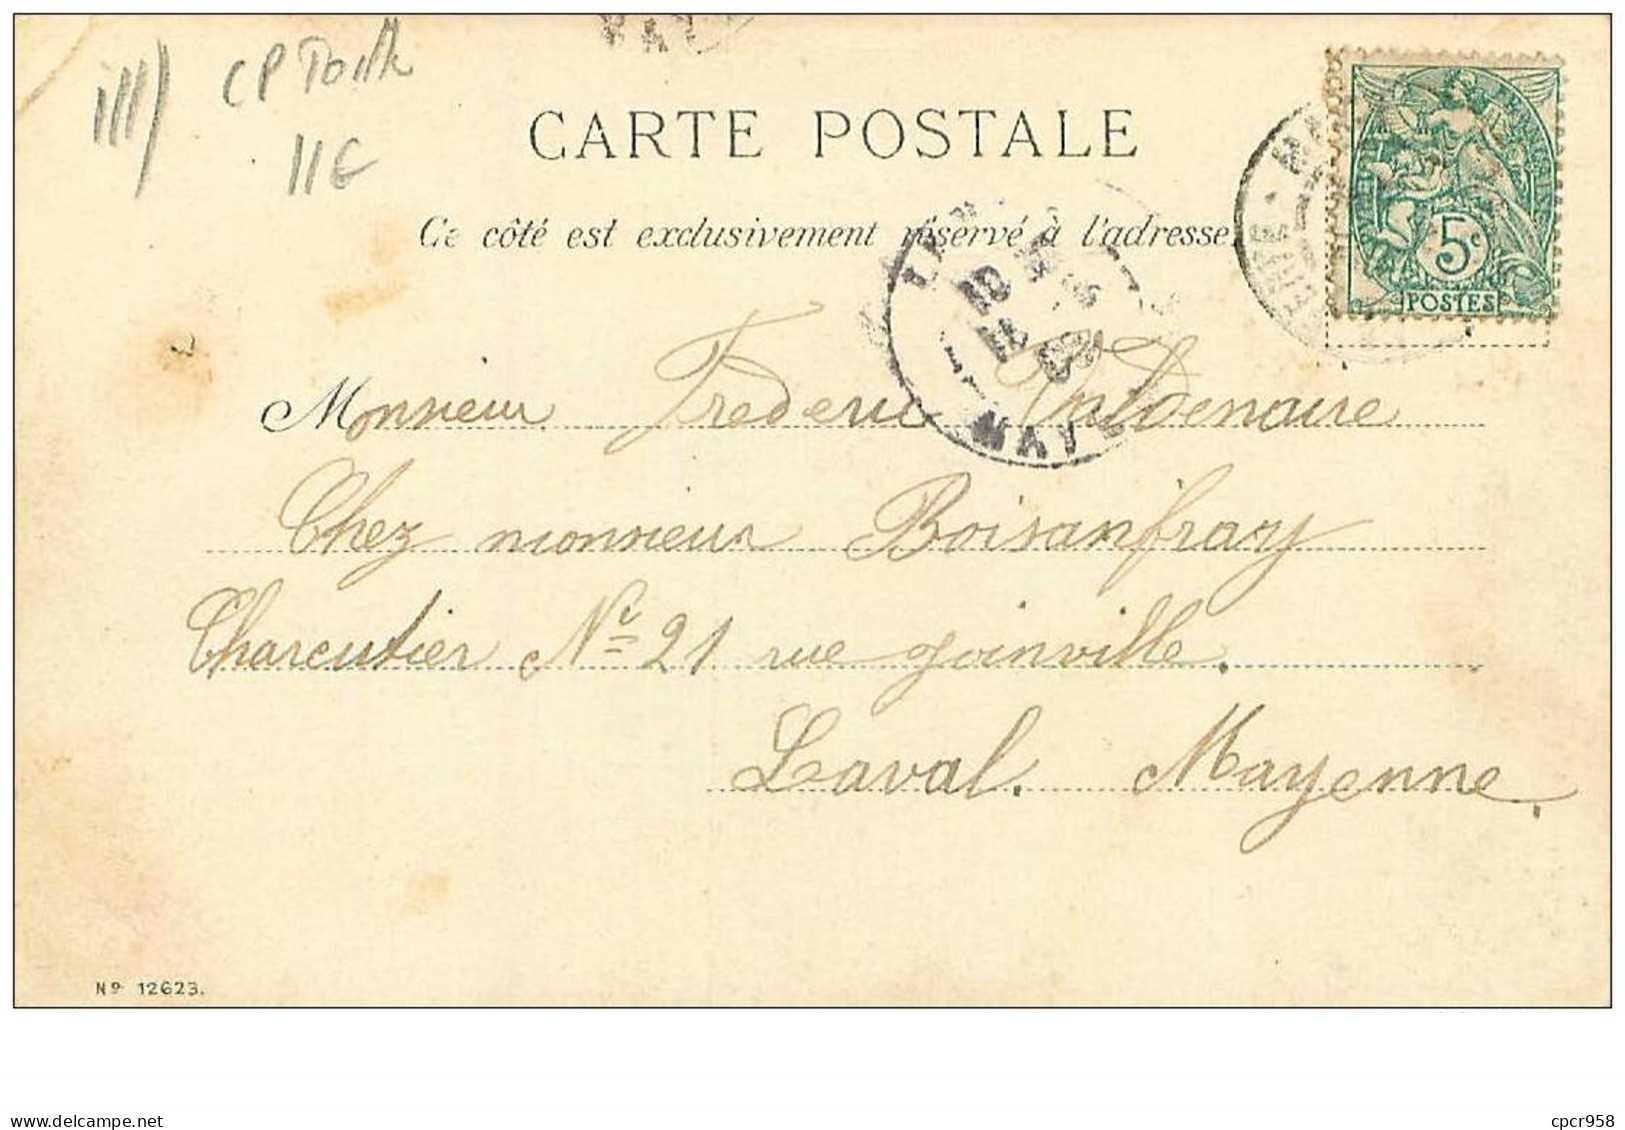 CP Toilée
11€
CARTE POSTALE
Ce côté est exclusivement réservé à l'adresse.
5c
POSTES
LAVAL
MAYENNE
Monsieur Frederic Valdenaire
Chez monsieur Boisanfray
Charcutier No 21 rue joinville.
Laval. Mayenne.
No 12623.
delcampe.net
cpcr958